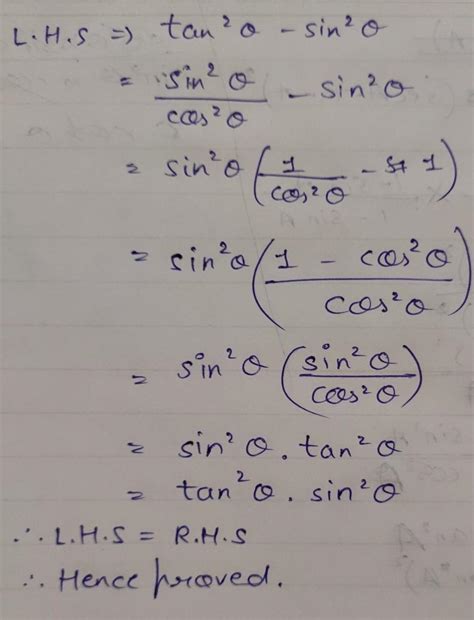 L.H.S ⇒ tan²θ - sin²θ
= sin²θ/cos²θ - sin²θ
= sin²θ (1/cos²θ - 1)
= sin²θ (1 - cos²θ/cos²θ)
= sin²θ (sin²θ/cos²θ)
= sin²θ . tan²θ
= tan²θ . sin²θ
∴ L.H.S = R.H.S
∴ Hence proved.